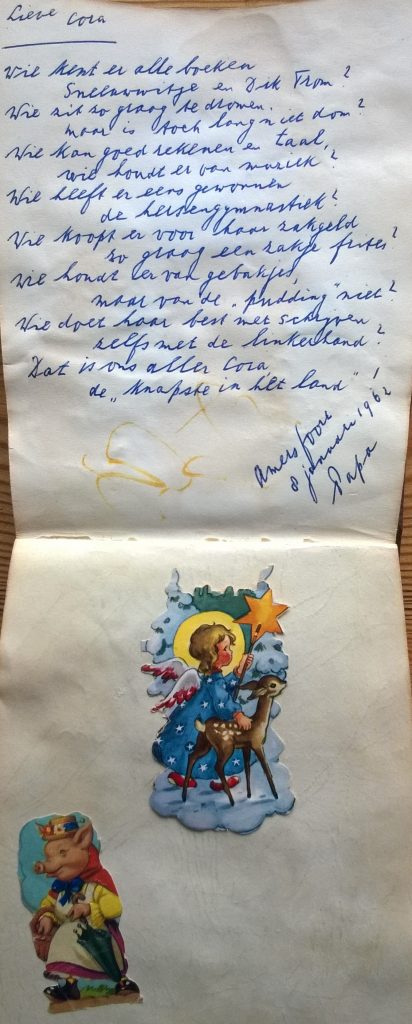 Lieve Cora
Wie kent er alle boeken
Sneeuwwitje en Dik Trom?
Wie zit zo graag te dromen.
maar is toch lang niet dom?
Wie kan goed rekenen en taal,
wie houdt er van muziek?
Wie heeft er eens gewonnen
de hersengymnastiek?
Wie koopt er voor haar zakgeld
zo graag een zakje frites?
Wie houdt er van gebakjes,
maar van de „pudding" niet?
Wie doet haar best met schrijven
zelfs met de linkerhand?
Dat is ons aller Cora,
de „knapste in het land"!
Amersfoort
8 januari 1962
Papa